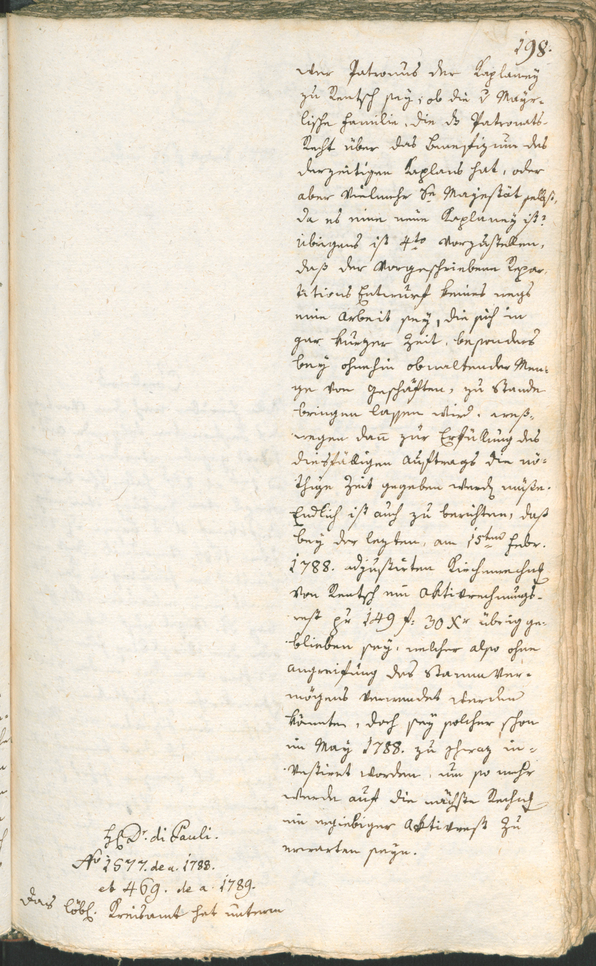 198.
wer Patronus der Kaplaney
zu Rentsch sey; ob die v Mayr-
lische Familie, die ds Patronats-
Recht über das Benefizium des
derzeitigen Kaplans hat, oder
aber vielmehr Se Majestät selbst,
da es eine neue Kaplaney ist?
übrigens ist 4to vorzustellen,
daß der vorgeschriebene Repar-
titions Entwurf keines wegs
eine Arbeit sey, die sich in
gar kurzer Zeit, besonders
bey ohnehin obwaltender Men-
ge von Geschäften, zu Stande
bringen lassen wird, weß-
wegen dan zur Erfüllung des
diesfälligen Auftrags die nö-
thige Zeit gegeben werd müste.
Endlich ist auch zu berichten, daß
bey der lezten, am 15ten Febr.
1788. adjustirten Kirchenrechng
von Rentsch ein Aktivrechnungs-
rest pr 149 f: 30 Xr übrig ge-
blieben sey, welcher also ohne
Angreifung des Stammver-
mögens verwendet werden
könnten, doch sey solcher schon
im May 1788. zu in-
vestiret worden, um so mehr
werde auf die nächste Rechng
ein ergiebiger Aktivrest zu
erwarten seyn.
H Dr. di Pauli.
No 1577. de a. 1788.
et 469. de a. 1789.
Das löbl. Kreisamt hat unterm